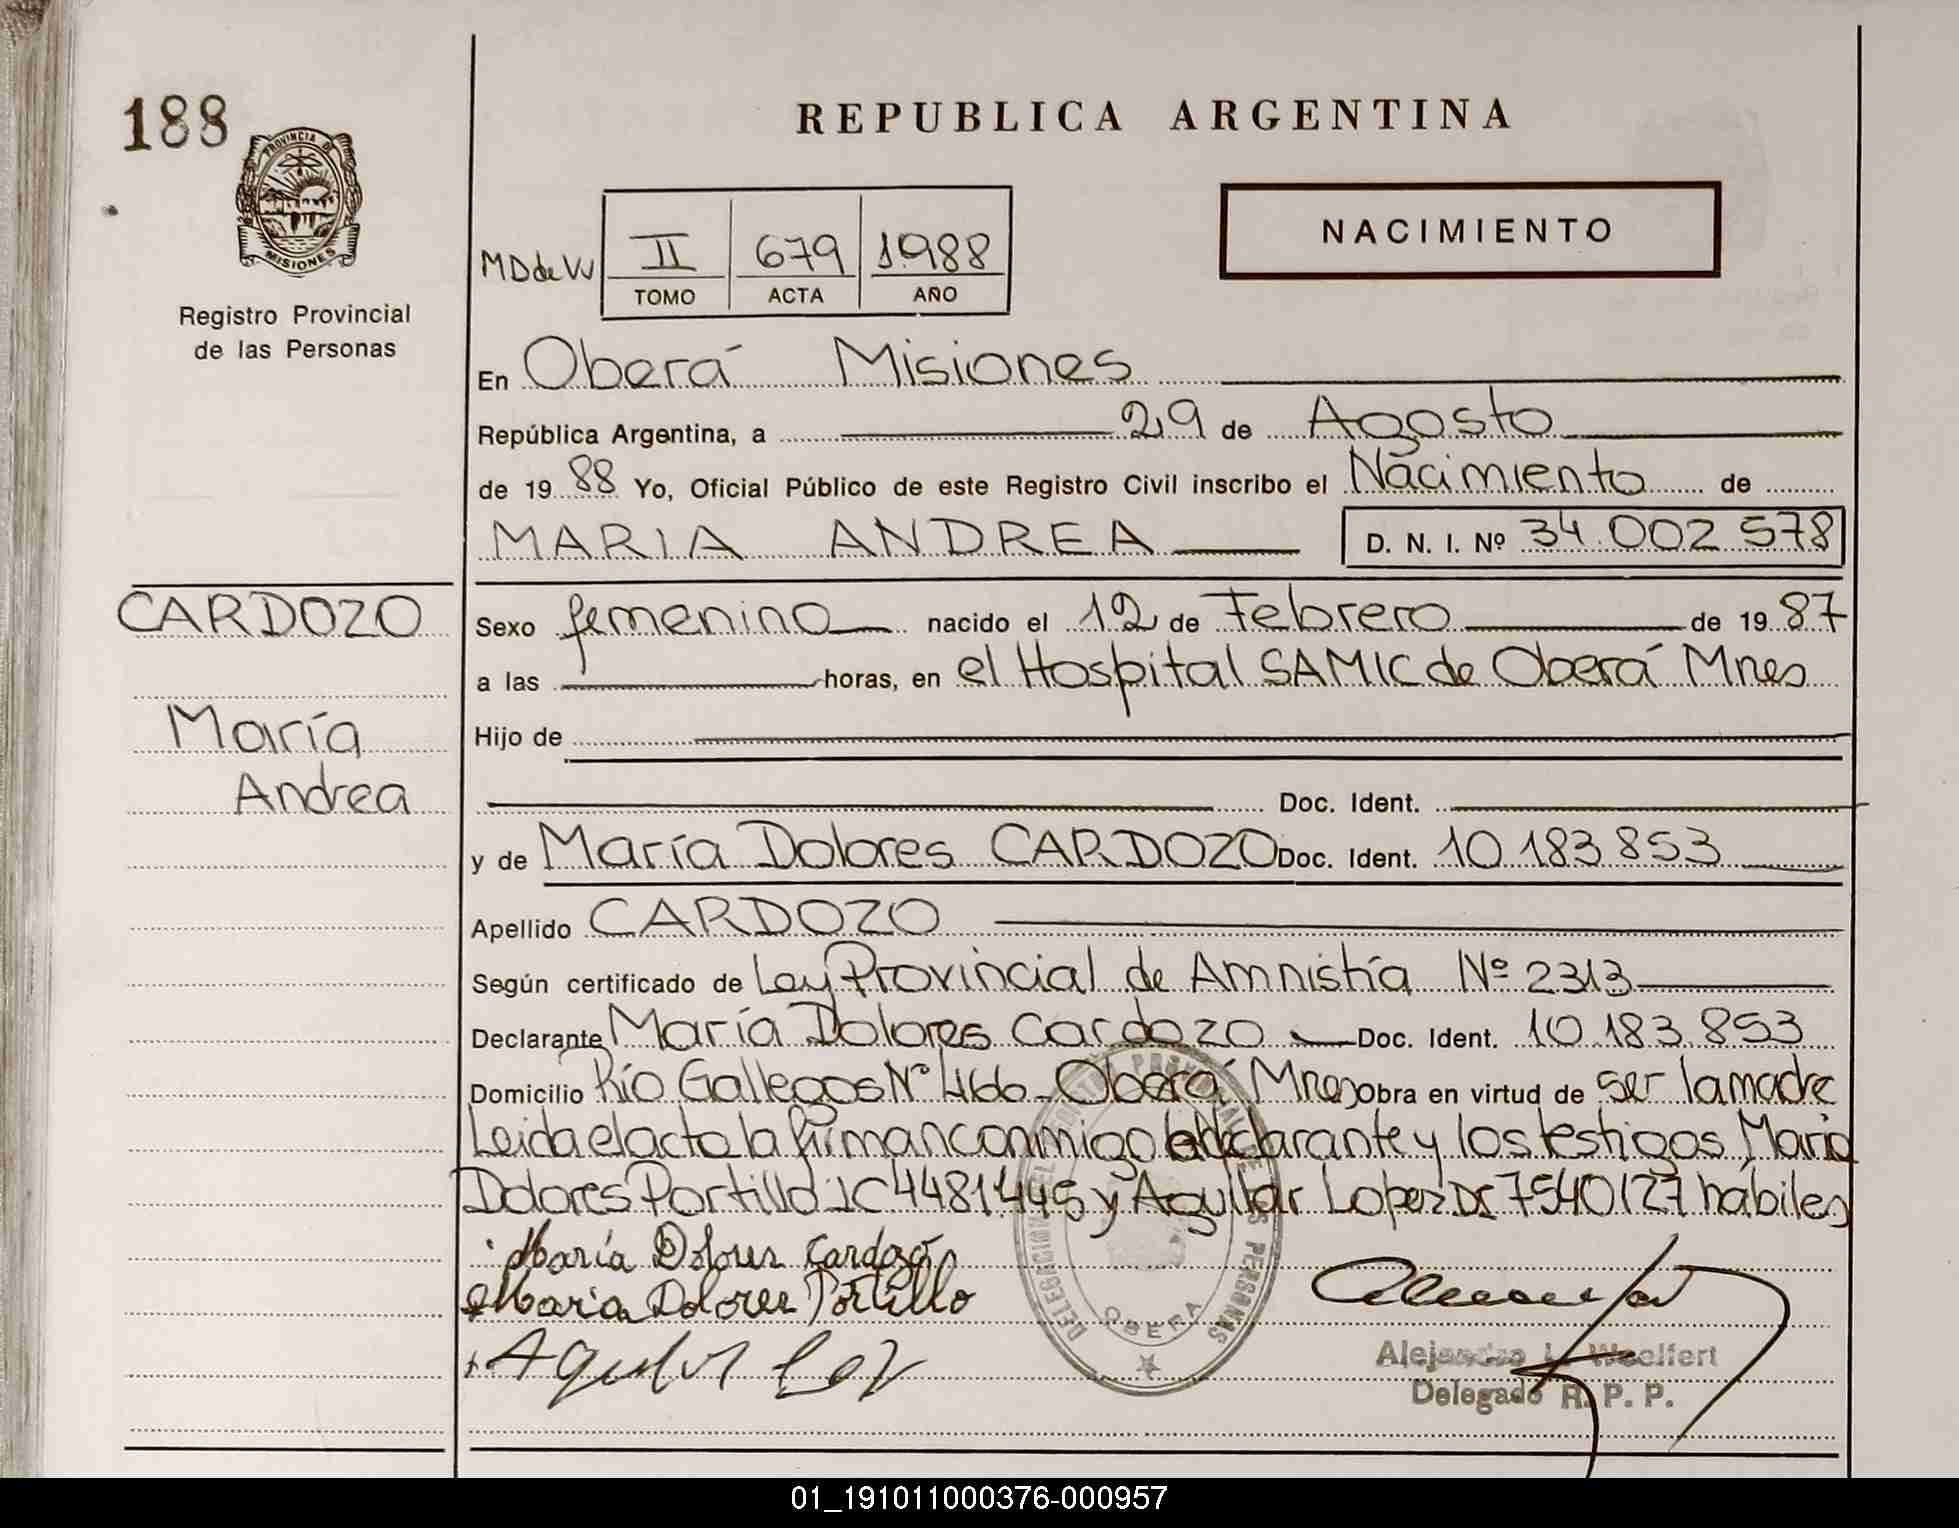 188
PROVINCIA DE
MISIONES
Registro Provincial
de las Personas
REPUBLICA ARGENTINA
NACIMIENTO
MD de VV
II 679 1988
TOMO ACTA AÑO
En Oberá Misiones
República Argentina, a 29 de Agosto
de 19 88 Yo, Oficial Público de este Registro Civil inscribo el Nacimiento de
MARIA ANDREA D. N. I. Nº 34.002 578
CARDOZO
María
Andrea
Sexo femenino nacido el 12 de Febrero de 19 87
a las horas, en el Hospital SAMIC de Oberá Mnes
Hijo de
Doc. Ident.
y de María Dolores CARDOZO Doc. Ident. 10.183.853
Apellido CARDOZO
Según certificado de Ley Provincial de Amnistía Nº 2313
Declarante María Dolores Cardozo Doc. Ident. 10.183.853
Domicilio Río Gallegos Nº 466 - Oberá Mnes Obra en virtud de ser la madre
Leida el acto la firman conmigo declarante y los testigos Maria
Dolores Portillo LC 4481445 y Aguilar Lopez DI 7540127 hábiles
María Dolores Cardozo
Maria Dolores Portillo
DELEGACION DEL REGISTRO PROVINCIAL DE LAS PERSONAS
OBERA
Alejandro L. Woelfert
Delegado R. P. P.
01_191011000376-000957